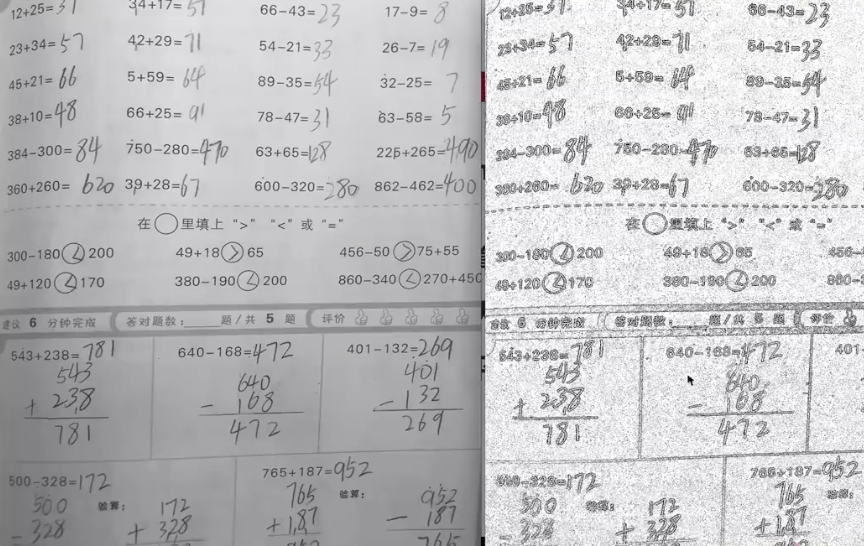 12+25=37 34+17=51 66-43=23 17-9=8
23+34=57 42+29=71 54-21=33 26-7=19
45+21=66 5+59=64 89-35=54 32-25=7
38+10=48 66+25=91 78-47=31 63-58=5
384-300=84 750-280=470 63+65=128 225+265=490
360+260=620 39+28=67 600-320=280 862-462=400
在○里填上 “>” “<” 或 “=”
300-180<200 49+18>65 456-50>75+55
49+120<170 380-190<200 860-340<270+450
建议 6 分钟完成 答对题数:____题/共 5 题 评价
543+238=781 640-168=472 401-132=269
543 640 401
+ 238 - 168 - 132
781 472 269
500-328=172 765+187=952
500 验算: 172 765 验算: 952
- 328 + 328 + 187 - 187
765
12+25=37 34+17=51 66-43=23
23+34=57 42+29=71 54-21=33
45+21=66 5+59=64 89-35=54
38+10=48 66+25=91 78-47=31
384-300=84 750-280=470 63+65=128
360+260=620 39+28=67 600-320=280
在○里填上 “>” “<” 或 “=”
300-180<200 49+18>65 456-
49+120<170 380-190<200 860-
建议 6 分钟完成 答对题数: 题/共 5 题 评价
543+238=781 640-168=472 401-
543 640
+ 238 - 168
781 472
500-328=172 765+187=952
500 验算: 172 765 验算:
- 328 + 328 + 187